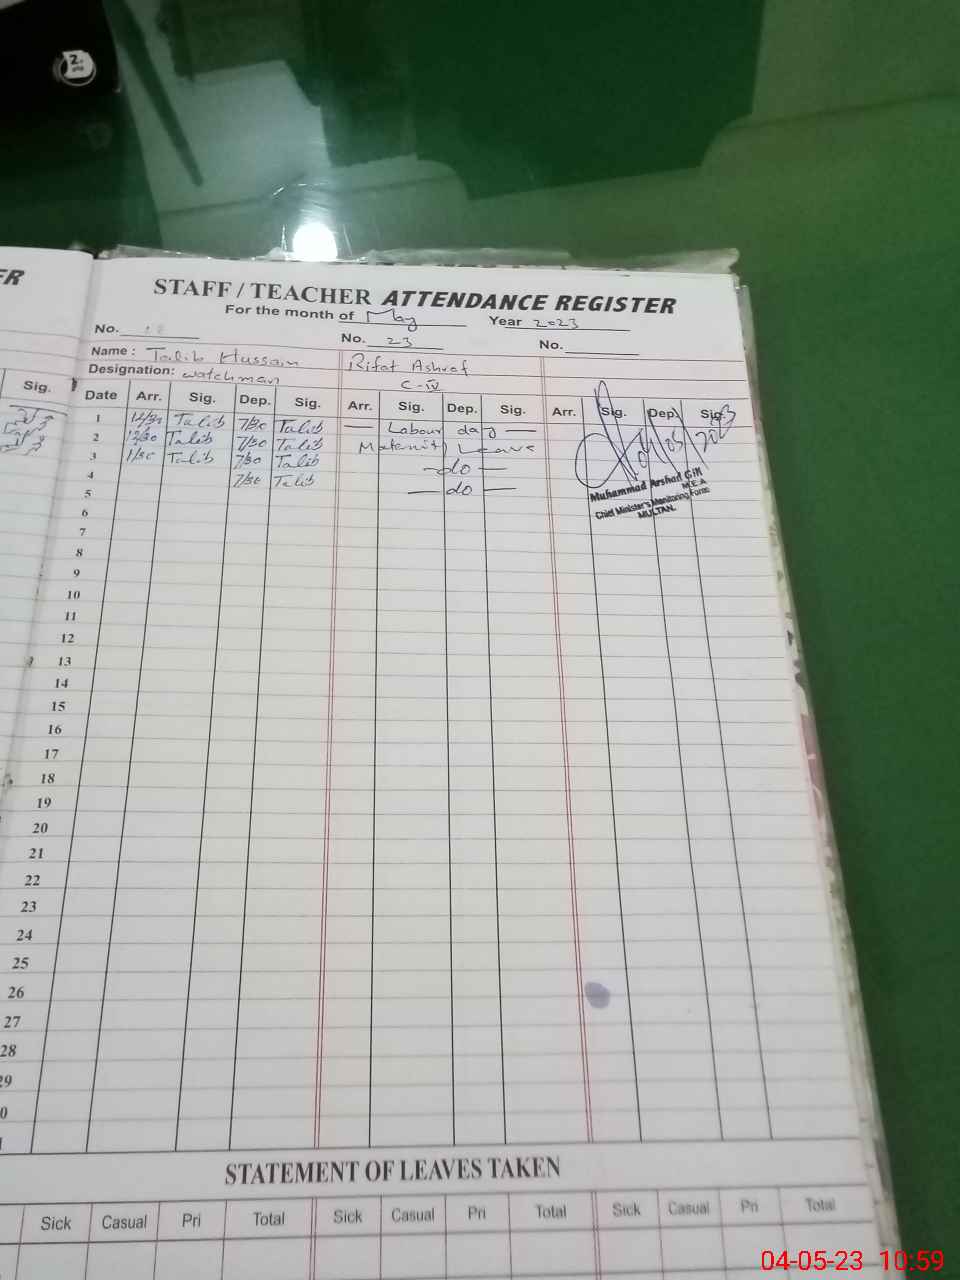 ER
STAFF / TEACHER ATTENDANCE REGISTER
For the month of May Year 2023
No. No. 23 No.
Name : Talib Hussain Rifat Ashraf
Designation: watchman C-IV
Sig. Date Arr. Sig. Dep. Sig. Arr. Sig. Dep. Sig. Arr. Sig. Dep. Sig.
1 12/30 Talib 7/30 Talib — Labour day —
2 12/30 Talib 7/30 Talib Maternity Leave
3 1/30 Talib 7/30 Talib — do —
4 7/30 Talib — do —
5
Muhammad Arshad Gill
M.E.A
Chief Minister's Monitoring Force
MULTAN.
6
7
8
9
10
11
12
13
14
15
16
17
18
19
20
21
22
23
24
25
26
27
28
29
0
1
STATEMENT OF LEAVES TAKEN
Sick Casual Pri Total Sick Casual Pri Total Sick Casual Pri Total
04-05-23 10:59